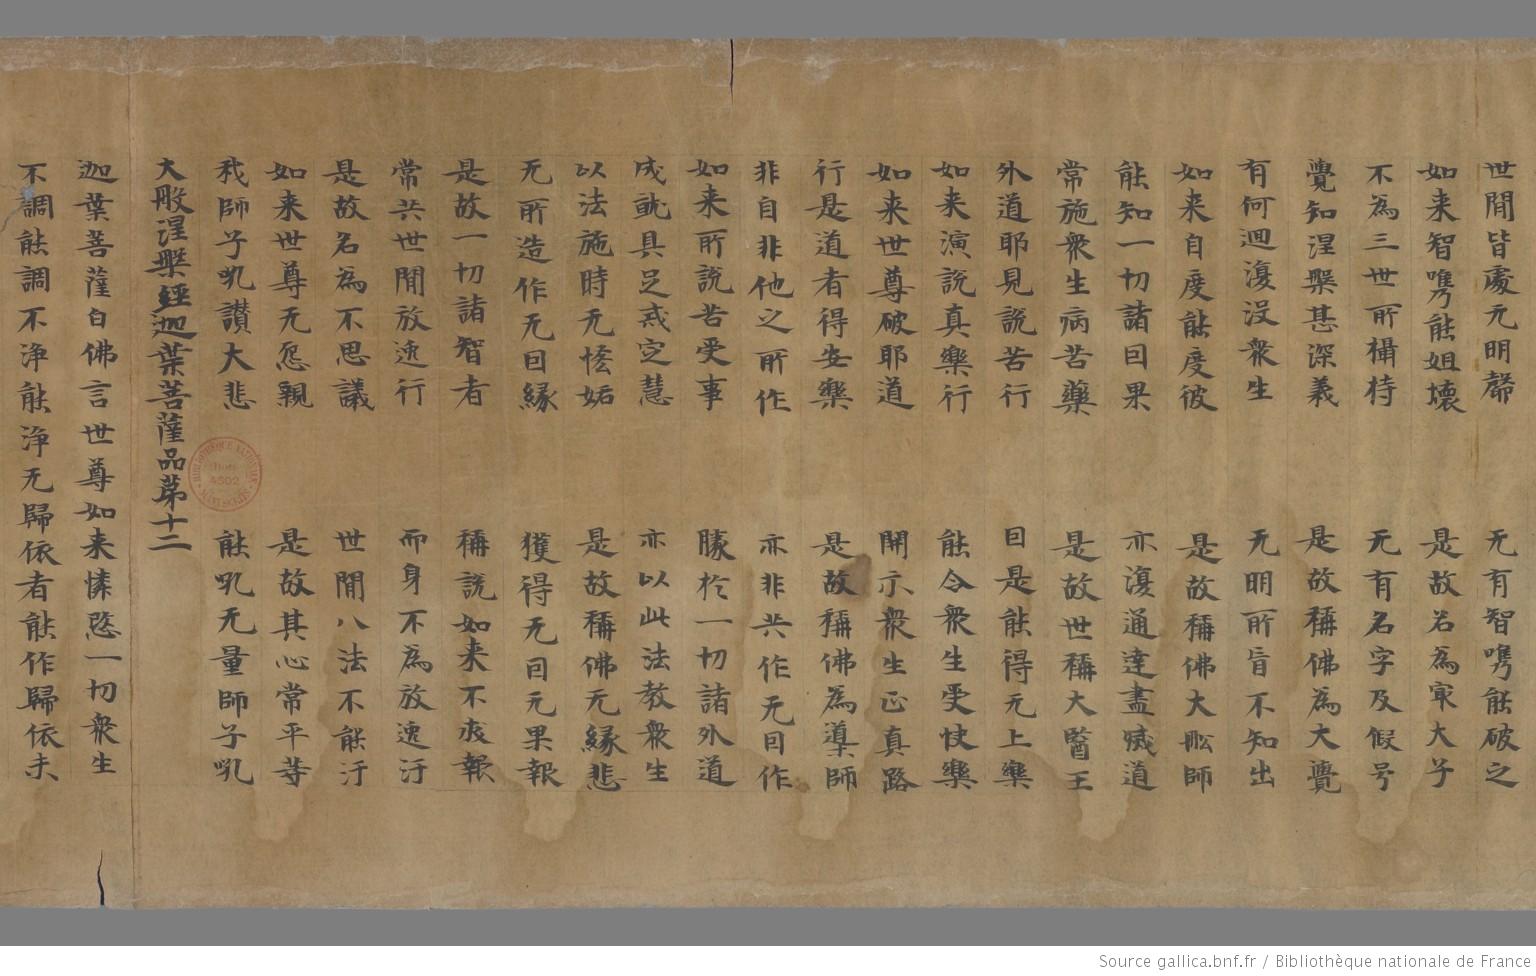 世間皆處无明㲉 无有智嘴能破之
如来智嘴能姐壞 是故名為冣大子
不為三世所攝持 无有名字及假号
覺知涅槃甚深義 是故稱佛為大覺
有何迴澓没衆生 无明所盲不知出
如来自度能度彼 是故稱佛大舩師
能知一切諸因果 亦復通達盡滅道
常施衆生病苦藥 是故世稱大醫王
外道耶見說苦行 因是能得无上樂
如来演說真樂行 能令衆生受快樂
如来世尊破耶道 開示衆生正真路
行是道者得安樂 是故稱佛為導師
非自非他之所作 亦非共作无因作
如来所說苦受事 勝於一切諸外道
成就具足戒定慧 亦以此法教衆生
以法施時无悋妬 是故稱佛无縁悲
无所造作无因縁 獲得无因无果報
是故一切諸智者 稱說如来不求報
常共世間放逸行 而身不為放逸汙
是故名為不思議 世間八法不能汙
如来世尊无怨親 是故其心常平等
我師子吼讃大悲 能吼无量師子吼
大般涅槃經迦葉菩薩品苐十二
迦葉菩薩白佛言世尊如来憐愍一切衆生
不調能調不浄能浄无歸依者能作歸依未
BIBLIOTHÈQUE NATIONALE MANUSCRITS 4502
Source gallica.bnf.fr / Bibliothèque nationale de France